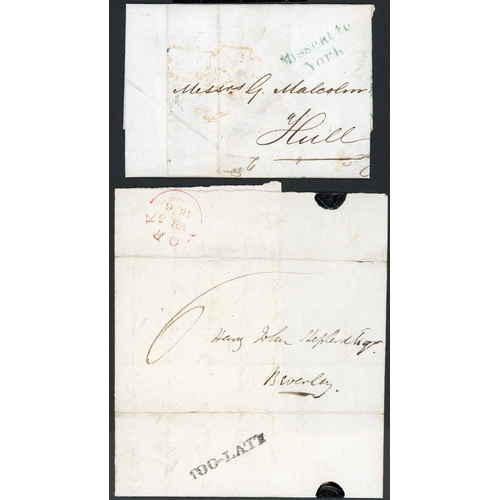 Missent to
York
Messrs G. Malcolm
Hull
YORK
6
Henry John Shepherd Esqr.
Beverley.
TOO-LATE